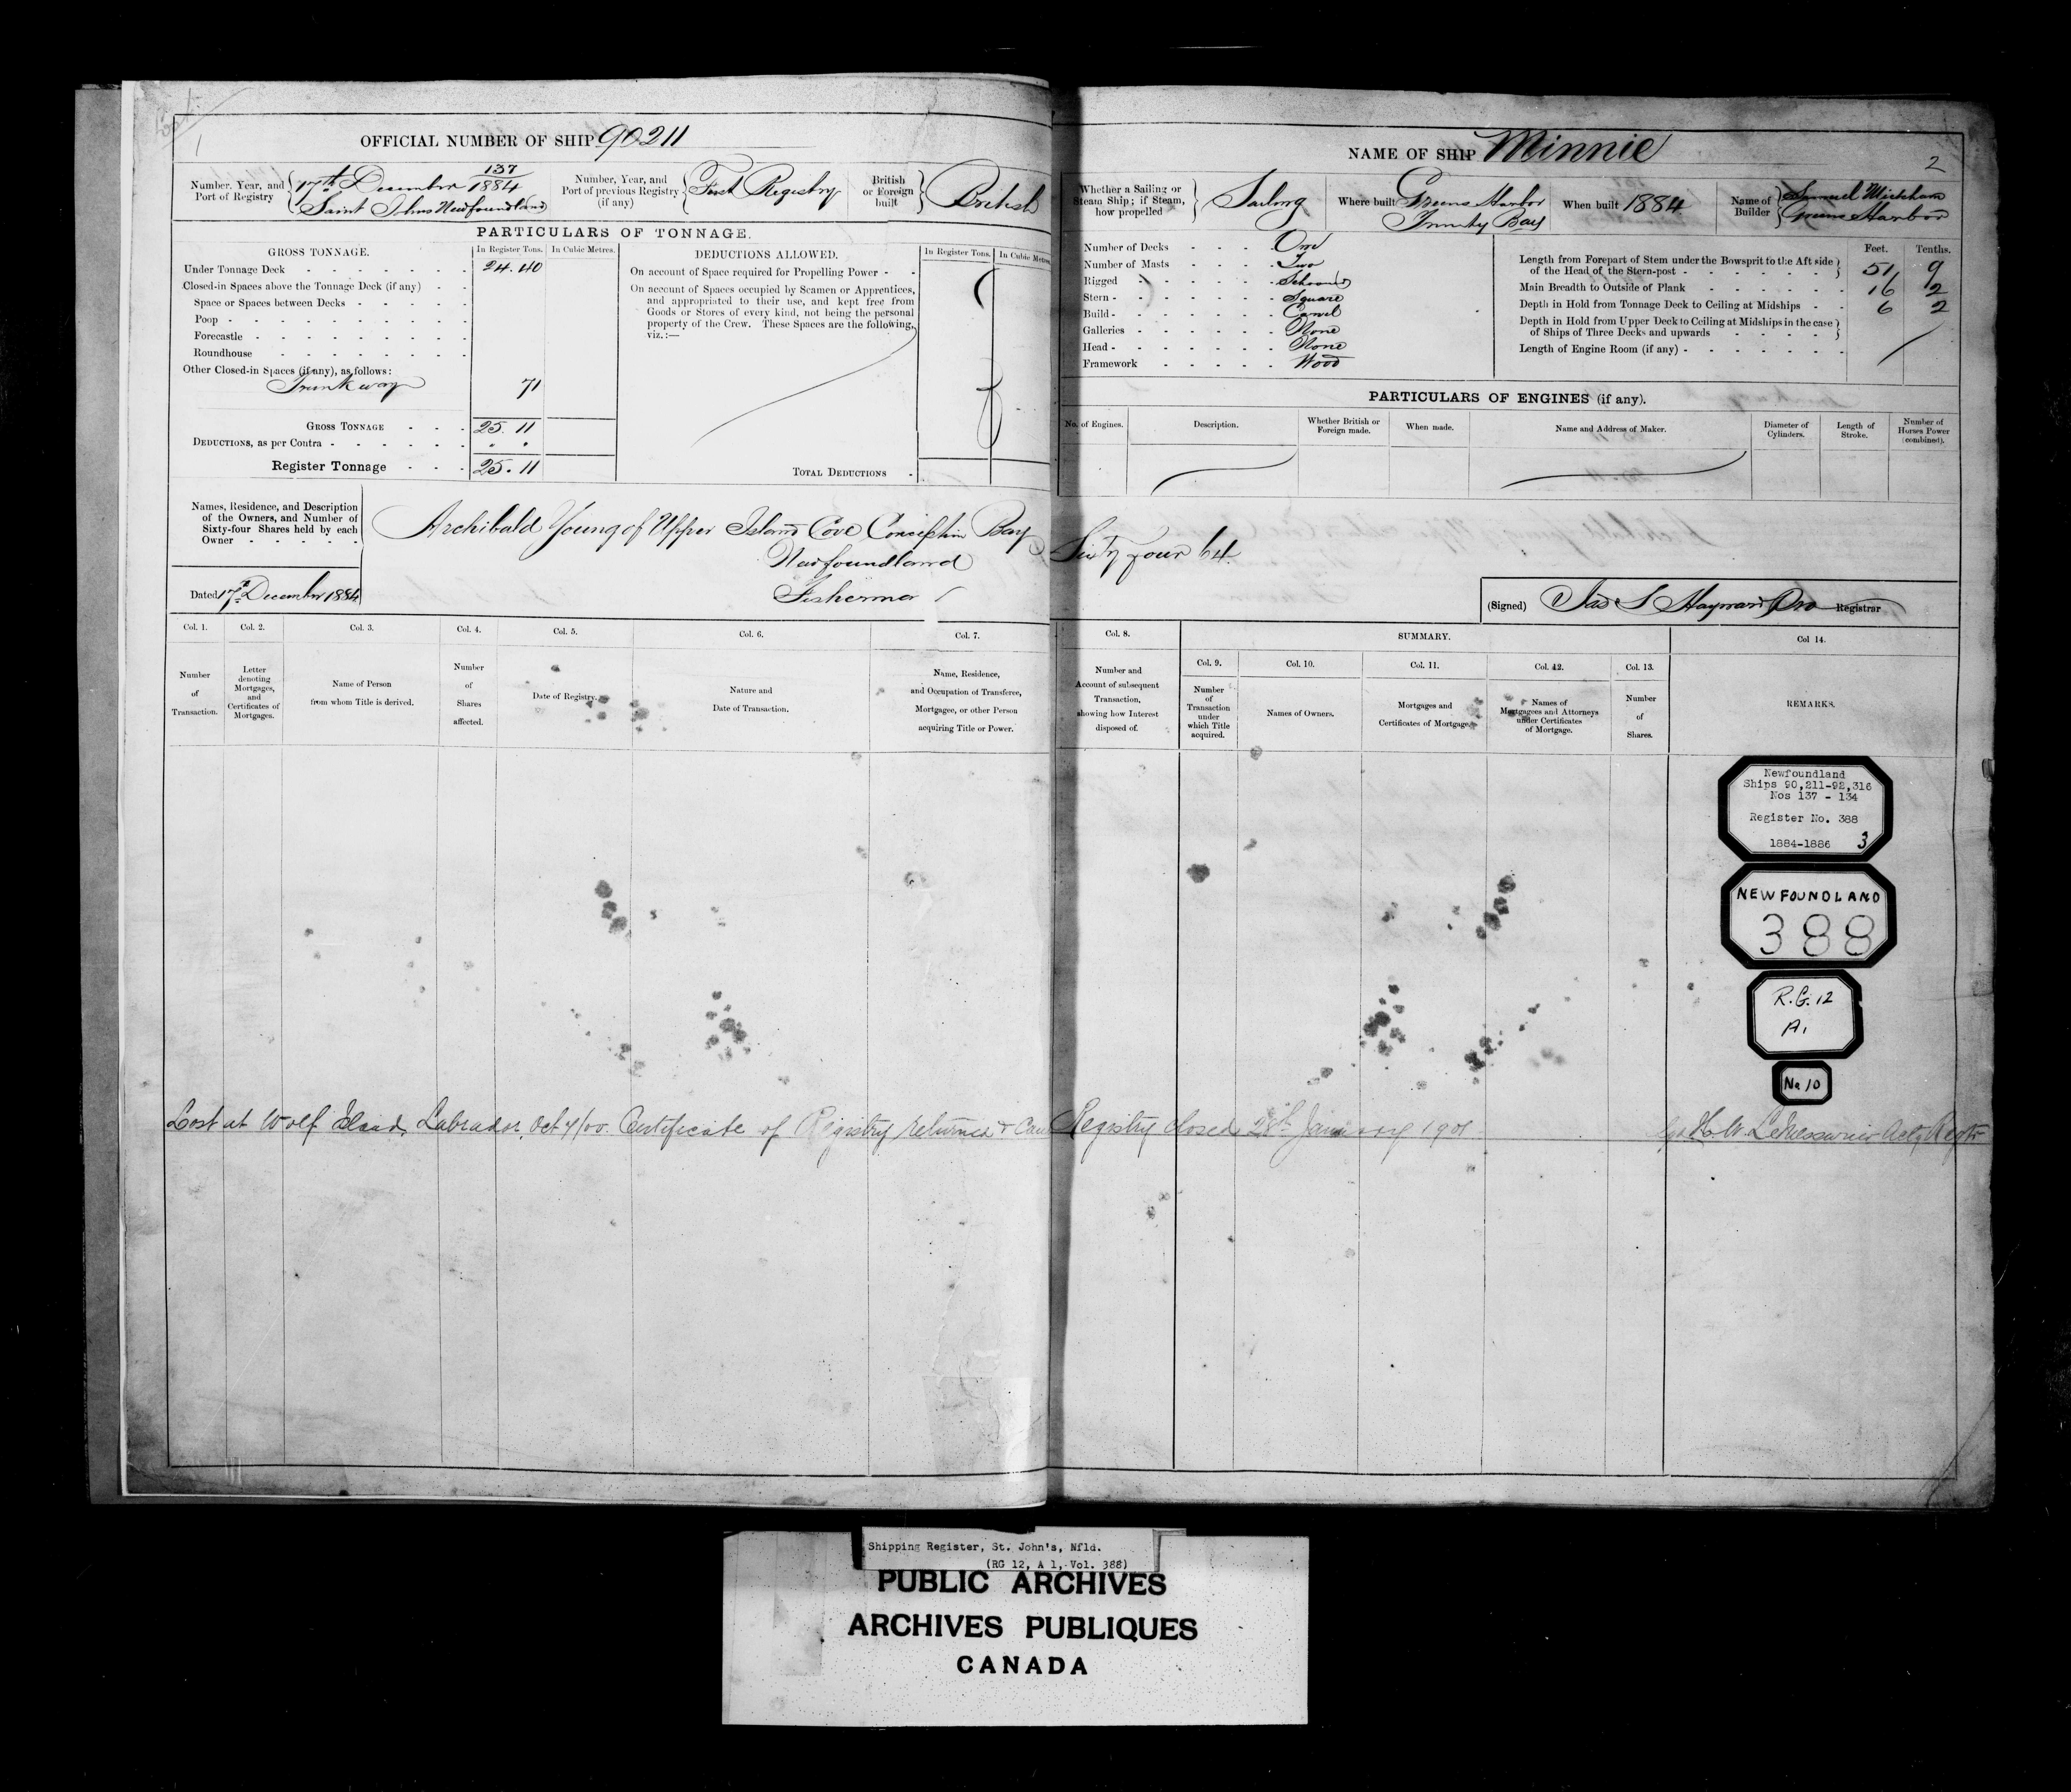 Lost
1
OFFICIAL NUMBER OF SHIP 90211
Number, Year, and Port of Registry
137
17th December 1884
Saint Johns Newfoundland
Number, Year, and Port of previous Registry (if any)
First Registry
British or Foreign built
British
PARTICULARS OF TONNAGE.
GROSS TONNAGE. In Register Tons. In Cubic Metres.
Under Tonnage Deck 24.40
Closed-in Spaces above the Tonnage Deck (if any)
Space or Spaces between Decks
Poop
Forecastle
Roundhouse
Other Closed-in Spaces (if any), as follows:
Trunk way 71
GROSS TONNAGE 25.11
DEDUCTIONS, as per Contra " "
Register Tonnage 25.11
DEDUCTIONS ALLOWED. In Register Tons. In Cubic Metres.
On account of Space required for Propelling Power
On account of Spaces occupied by Seamen or Apprentices,
and appropriated to their use, and kept free from
Goods or Stores of every kind, not being the personal
property of the Crew. These Spaces are the following,
viz.:—
TOTAL DEDUCTIONS
Names, Residence, and Description
of the Owners, and Number of
Sixty-four Shares held by each
Owner
Archibald Young of Upper Island Cove Conception Bay
Newfoundland
Fisherman
Dated 17th December 1884
Col. 1. Col. 2. Col. 3. Col. 4. Col. 5. Col. 6. Col. 7.
Number of Transaction.
Letter denoting Mortgages, and Certificates of Mortgages.
Name of Person from whom Title is derived.
Number of Shares affected.
Date of Registry.
Nature and Date of Transaction.
Name, Residence, and Occupation of Transferee, Mortgagee, or other Person acquiring Title or Power.
NAME OF SHIP Minnie
2
Whether a Sailing or Steam Ship; if Steam, how propelled
Sailing
Where built
Greens Harbor
Trinity Bay
When built 1884
Name of Builder
Samuel
Greens Harbor
Number of Decks One
Number of Masts Two
Rigged Schooner
Stern Square
Build Carvel
Galleries None
Head None
Framework Wood
Feet. Tenths.
Length from Forepart of Stem under the Bowsprit to the Aft side
of the Head of the Stern-post 51 9
Main Breadth to Outside of Plank 16 2
Depth in Hold from Tonnage Deck to Ceiling at Midships 6 2
Depth in Hold from Upper Deck to Ceiling at Midships in the case
of Ships of Three Decks and upwards
Length of Engine Room (if any)
PARTICULARS OF ENGINES (if any).
No. of Engines. Description. Whether British or Foreign made. When made. Name and Address of Maker. Diameter of Cylinders. Length of Stroke. Number of Horses Power (combined).
Sixty four 64
(Signed) Jas S Hayward Pro Registrar
Col. 8. SUMMARY. Col 14.
Col. 9. Col. 10. Col. 11. Col. 12. Col. 13.
Number and Account of subsequent Transaction, showing how Interest disposed of.
Number of Transaction under which Title acquired.
Names of Owners.
Mortgages and Certificates of Mortgage.
Names of Mortgagees and Attorneys under Certificates of Mortgage.
Number of Shares.
REMARKS.
Newfoundland
Ships 90,211-92,316
Nos 137 - 134
Register No. 388
1884-1886 3
NEWFOUNDLAND
388
R.G. 12
A1
No 10
Lost at Wolf Island, Labrador, Oct 4/00. Certificate of Registry returned & Can Registry closed 28th January 1901 H.W. LeMessurier Actg Regtr
Shipping Register, St. John's, Nfld.
(RG 12, A 1, Vol. 388)
PUBLIC ARCHIVES
ARCHIVES PUBLIQUES
CANADA